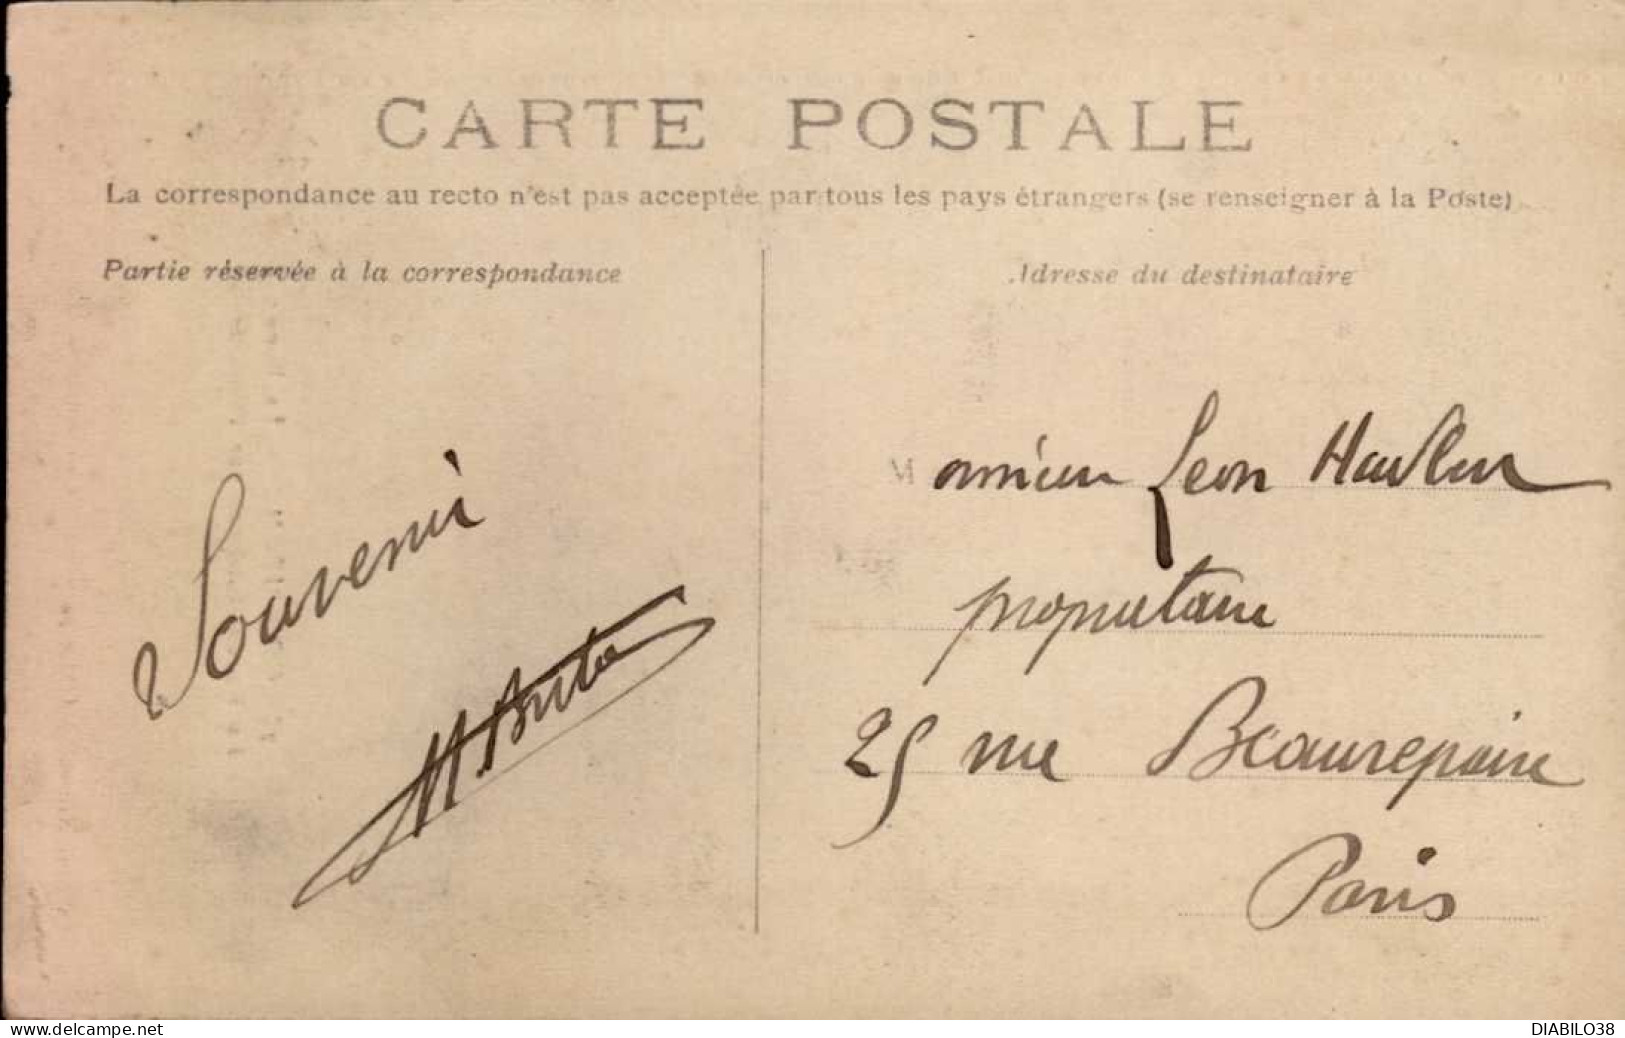 CARTE POSTALE
La correspondance au recto n'est pas acceptée par tous les pays étrangers (se renseigner à la Poste)
Partie réservée à la correspondance
Souvenir
Adresse du destinataire
Monsieur Leon
propriétaire
25 rue Beaurepaire
Paris
www.delcampe.net
DIABILO38